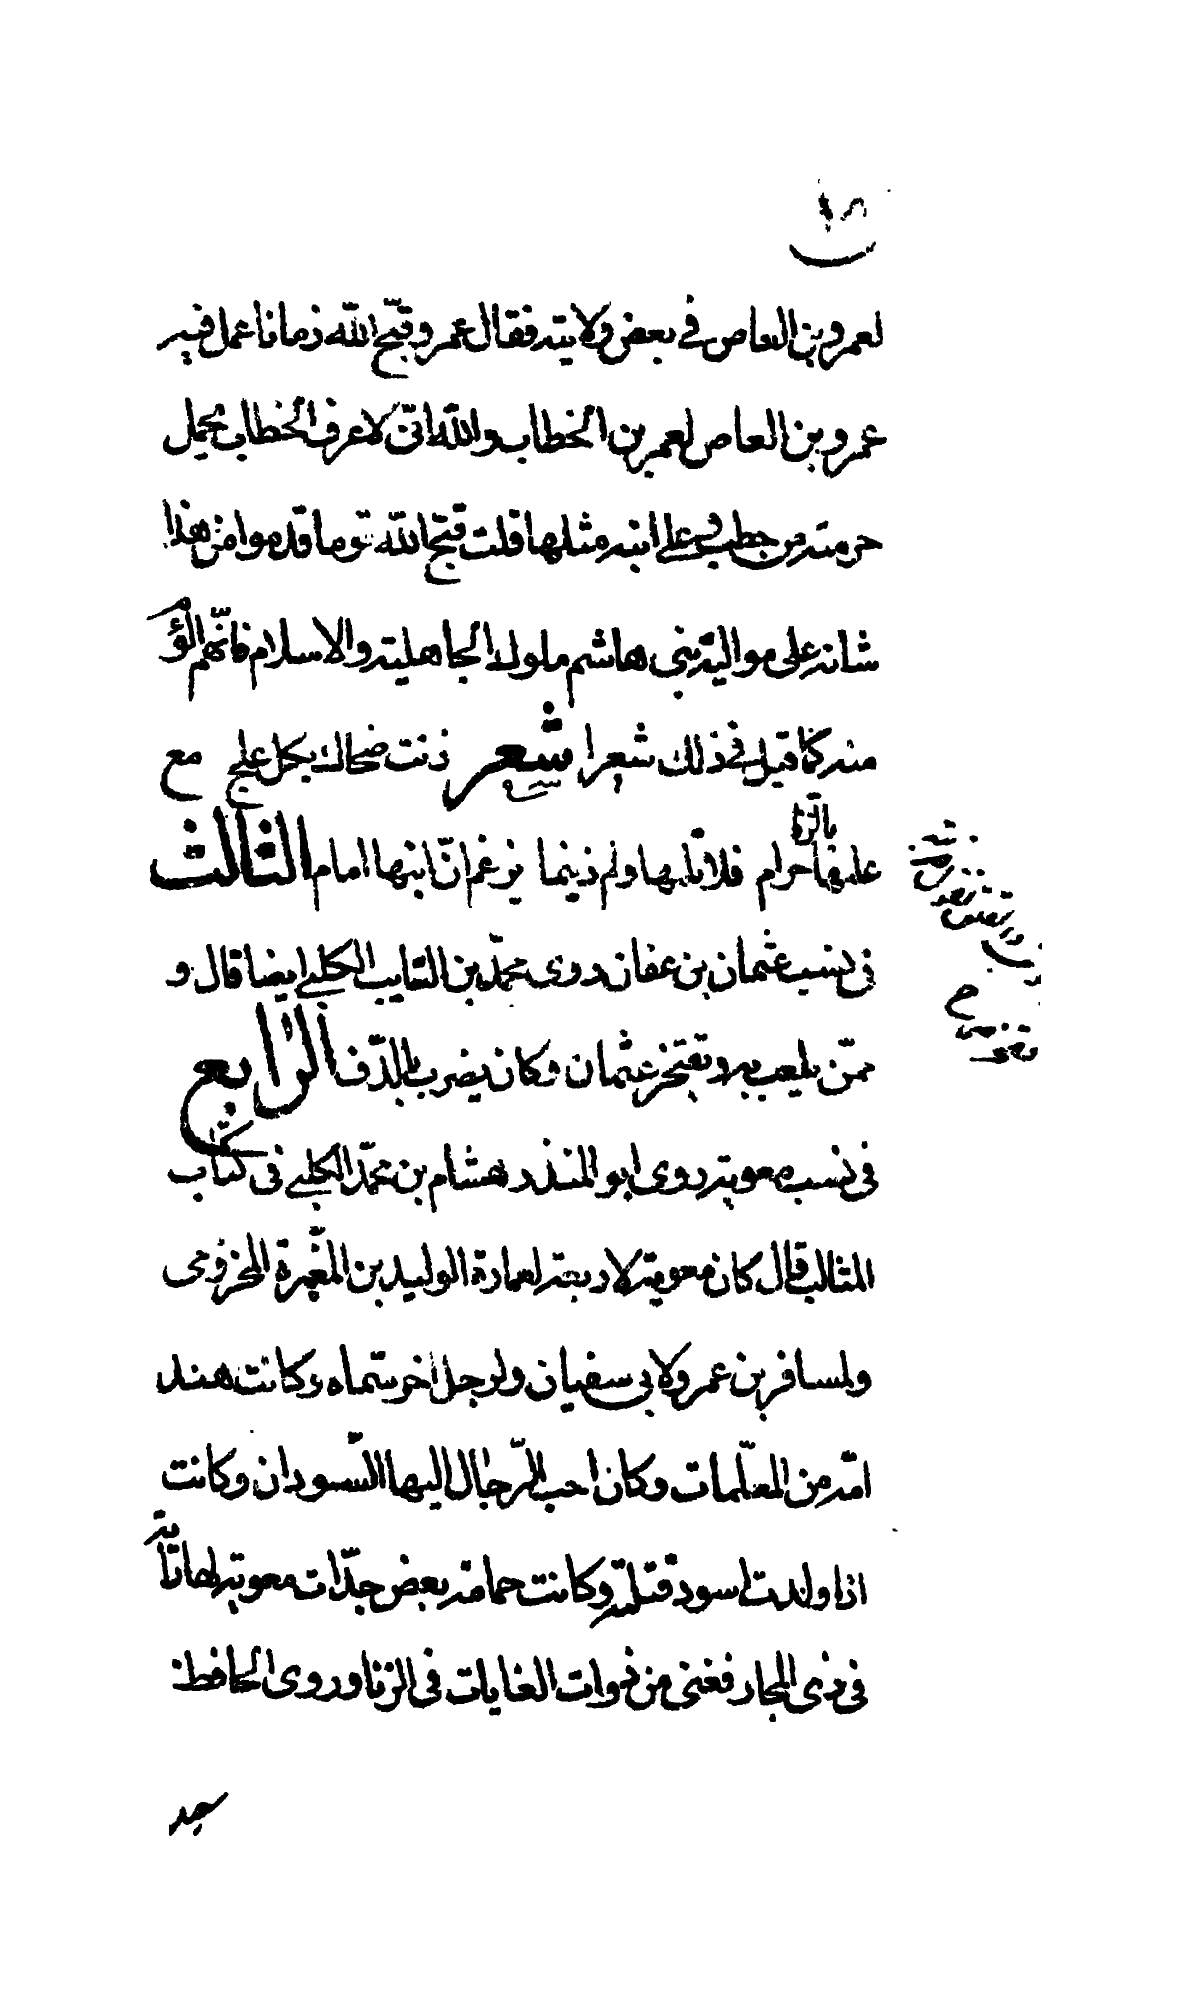 لعمرو بن العاص في بعض ولايته فقال عمرو قبّح الله زمانا عمل فيه
عمرو بن العاص لعمر بن الخطاب والله انّى لاعرف الخطاب يحمل
حزمته من حطب و على ابنه مثلها قلت قبّح الله قوما قدموا من هذا
شانه على مواليه بنى هاشم ملوك الجاهلية والاسلام فانّهم الؤم
منه كما قيل فى ذلك شعرا شعر زنت ضحاك بكل علج مع
علمها حرام بالزنا فلا تابها ولم ذينما نزعم انّ ابنها امام الثالث
فى نسب عثمان بن عفان روى محمّد بن السّايب الكلبى ايضا قال و
ممّن يلعب به ويفتخر عثمان وكان يضرب بالدّف الرّابع
فى نسب معوية روى ابو المنذر هشام بن محمّد الكلبى فى كتاب
المثالب قال كان معوية لاربعة لعمارة الوليد بن المغيرة المخزومى
ولمسافر بن عمرو لابى سفيان ولرجل اخر سمّاه وكانت هند
امّه من المعلّمات وكان احب الرّجال اليها السّودان وكانت
اذا ولدت اسود قتلته وكانت حمامة بعض جدّات معوية لها راية
فى ذى المجاز فغنى من ذوات الغايات فى الزنا وروى الحافظ